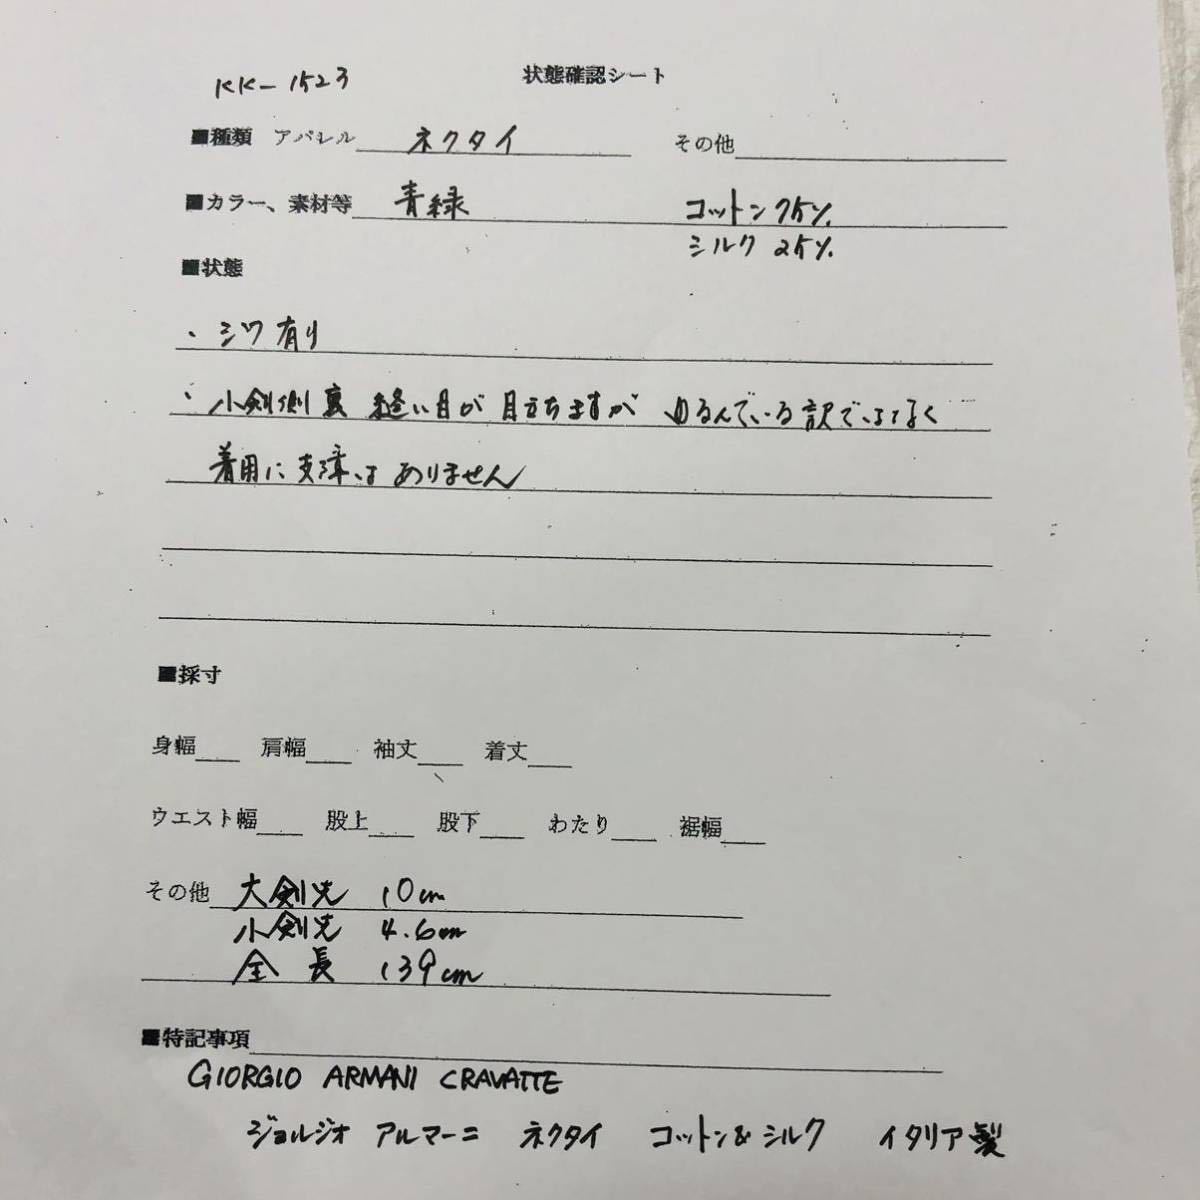 KK-1523
状態確認シート
■種類 アパレル ネクタイ その他
■カラー、素材等 青緑 コットン75%
シルク 25%
■状態
・シワ有り
・小剣側裏 縫い目が目立ちますが ゆるんでいる訳ではなく
着用に支障はありません
■採寸
身幅 肩幅 袖丈 着丈
ウエスト幅 股上 股下 わたり 裾幅
その他 大剣先 10cm
小剣先 4.6cm
全長 139cm
■特記事項
GIORGIO ARMANI CRAVATTE
ジョルジオ アルマーニ ネクタイ コットン&シルク イタリア製